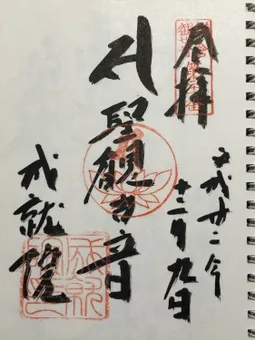 奉拝
平成廿二年
十二月九日
聖観世音
成就院